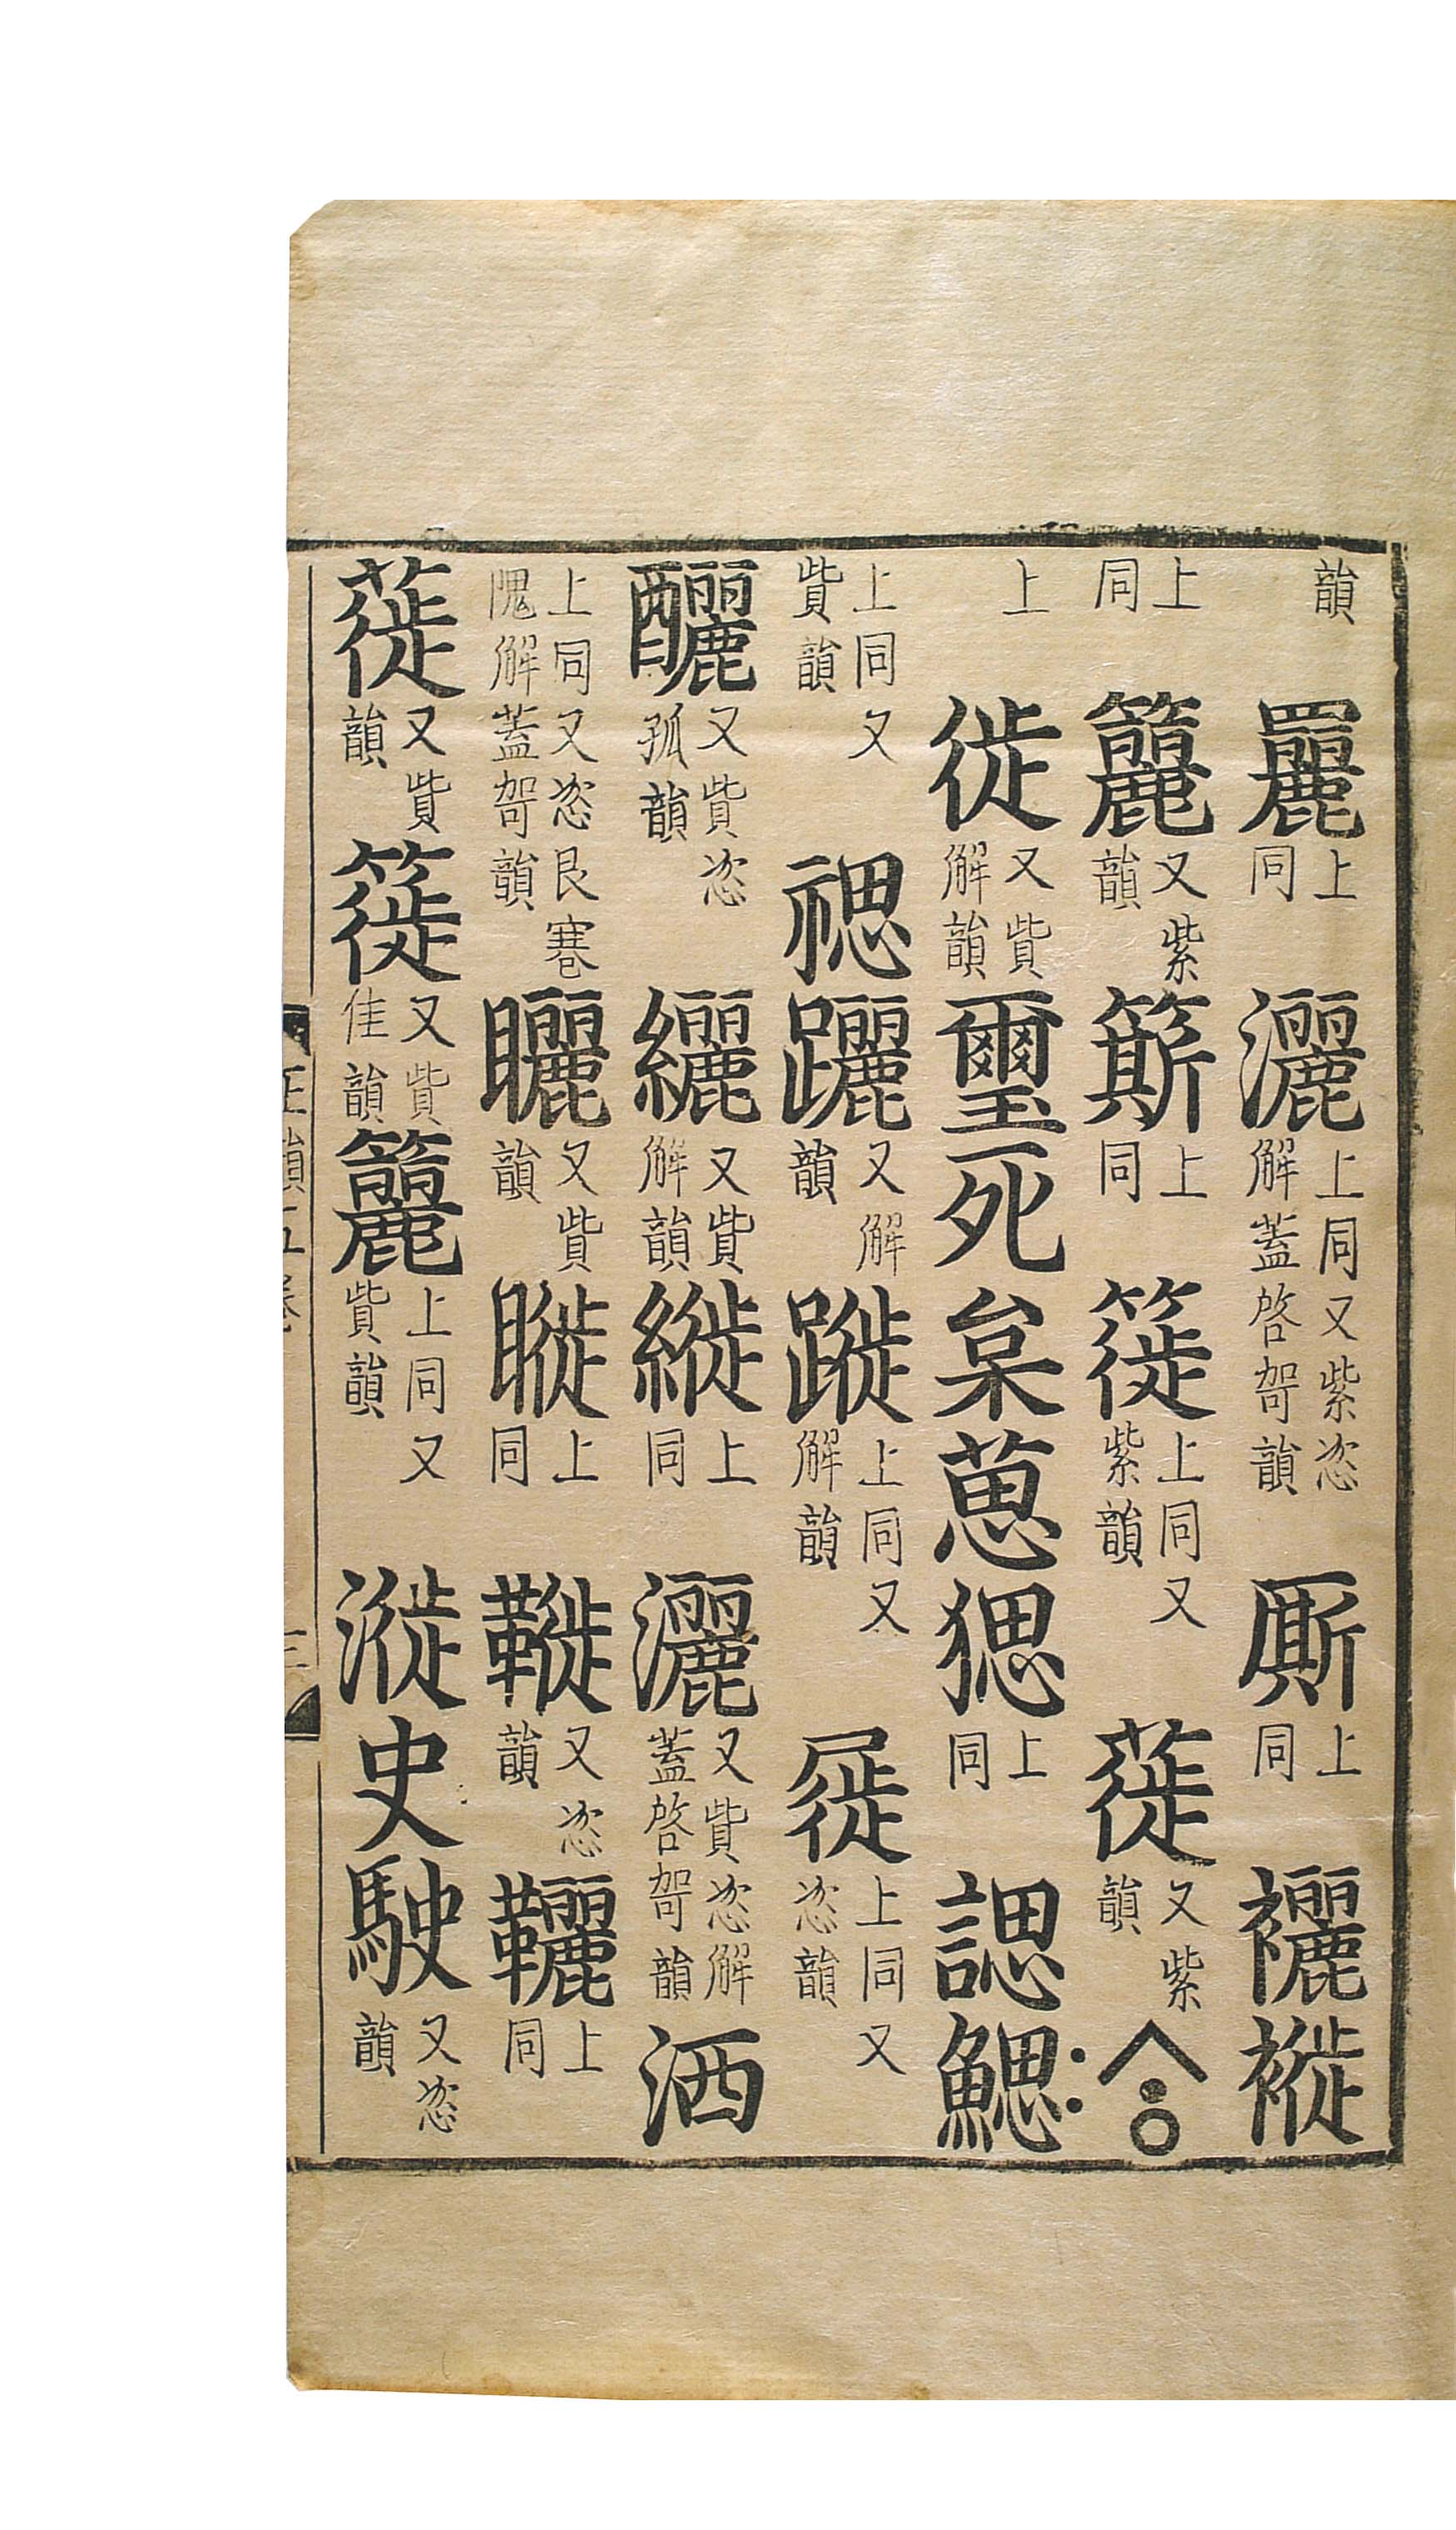 韻䍦上同灑上同又紫恣解蓋啓哿韻廝上同襹褷
上同籭又紫韻簛上同簁上同又紫韻蓰又紫韻
上徙又貲解韻璽死枲葸㹝上同諰鰓
上同又貲韻禗躧又解韻蹝上同又解韻屣上同又恣韻
釃又貲恣孤韻纚又貲解韻縰上同灑又貲恣解蓋啓哿韻洒
上同又恣艮寋隗解蓋哿韻矖又貲韻䁤上同鞭又恣韻韆上同
蓰又貲韻簁又貲佳韻籭上同又貲韻漇史駛又恣韻